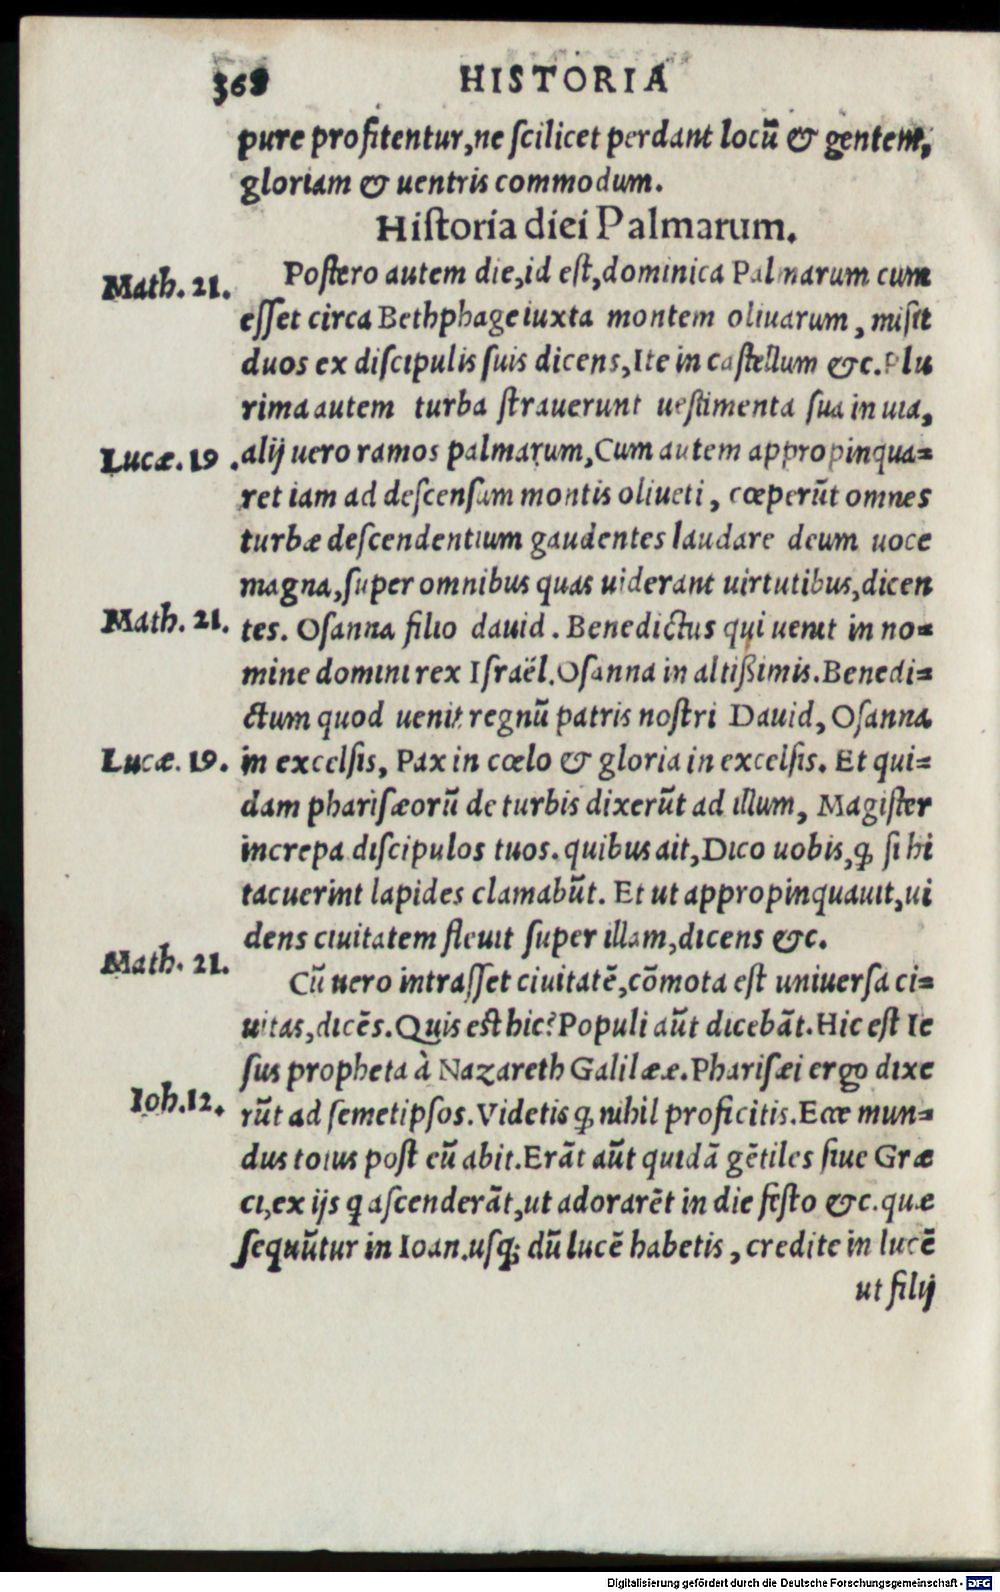 368 HISTORIA
pure profitentur, ne ſcilicet perdant locũ & gentem,
gloriam & uentris commodum.
Hiſtoria diei Palmarum.
Math. 21. Poſtero autem die, id eſt, dominica Palmarum cum
eſſet circa Bethphage iuxta montem oliuarum, miſit
duos ex diſcipulis ſuis dicens, Ite in caſtellum &c. Plu
rima autem turba ſtrauerunt ueſtimenta ſua in uia,
Lucæ. 19. alij uero ramos palmarum, Cum autem appropinqua=
ret iam ad deſcenſum montis oliueti, cœperũt omnes
turbæ deſcendentium gaudentes laudare deum uoce
magna, ſuper omnibus quas uiderant uirtutibus, dicen
Math. 21. tes. Oſanna filio dauid. Benedictus qui uenit in no=
mine domini rex Iſraël. Oſanna in altißimis. Benedi=
ctum quod uenit regnũ patris noſtri Dauid, Oſanna
Lucæ. 19. in excelſis, Pax in cœlo & gloria in excelſis. Et qui=
dam phariſæorũ de turbis dixerũt ad illum, Magiſter
increpa diſcipulos tuos. quibus ait, Dico uobis, ꝙ ſi hi
tacuerint lapides clamabũt. Et ut appropinquauit, ui
dens ciuitatem fleuit ſuper illam, dicens &c.
Math. 21. Cũ uero intraſſet ciuitatẽ, cõmota eſt uniuerſa ci=
uitas, dicẽs. Quis eſt hic? Populi aũt dicebãt. Hic eſt Ie
ſus propheta à Nazareth Galilææ. Phariſæi ergo dixe
Ioh. 12. rũt ad ſemetipſos. Videtis ꝙ nihil proficitis. Ecce mun=
dus totus poſt eũ abit. Erãt aũt quidã gẽtiles ſiue Græ
ci, ex ijs ꝗ aſcenderãt, ut adorarẽt in die feſto &c. quæ
ſequũtur in Ioan. uſqꝫ dũ lucẽ habetis, credite in lucẽ
ut filij
Digitalisierung gefördert durch die Deutsche Forschungsgemeinschaft - DFG